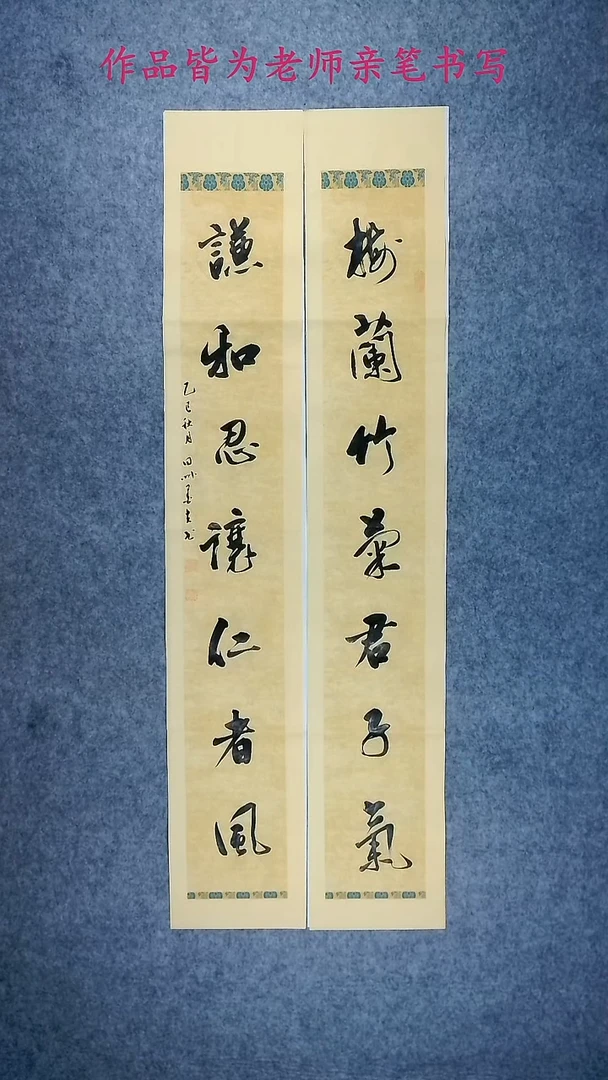 作品皆为老师亲笔书写
梅蘭竹菊君子氣
謙和忍讓仁者風
乙巳秋月